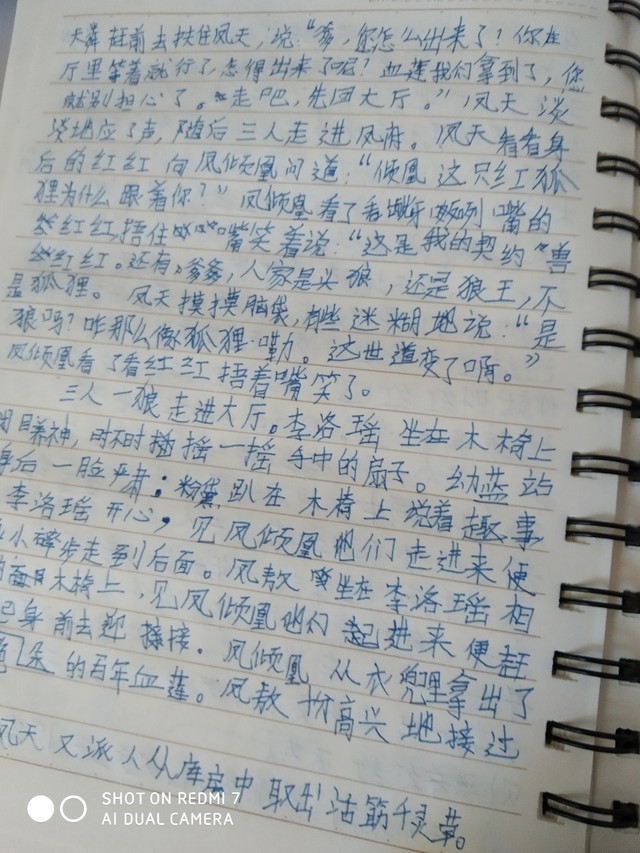 天舞赶前去扶住凤天,说:“爹,您怎么出来了?你在
厅里等着就行了,怎得出来了呢?血莲我们拿到了,您
就别担心了。走吧,先回大厅。”凤天淡
淡地应了声,随后三人走进凤府。凤天看着身
后的红红向凤倾凰问道:“倾凰这只红狐
狸为什么跟着你?”凤倾凰看了看龇牙咧嘴的
红红,捂住嘴笑着说:“这是我的契约兽
红红。还有,爹爹,人家是头狼,还是狼王,不
是狐狸。凤天摸摸脑袋,有些迷糊地说:“是
狼吗?咋那么像狐狸嘞。这世道变了啊。”
凤倾凰看了看红红捂着嘴笑了。
三人一狼走进大厅。李洛瑶坐在木椅上
闭目养神,时不时摇一摇手中的扇子。幼蓝站
身后一脸严肃;粉黛趴在木椅上说着趣事
李洛瑶开心,见凤倾凰他们走进来便
小碎步走到后面。凤敖坐在李洛瑶相
木椅上,见凤倾凰他们走进来便赶
身前去迎接。凤倾凰从衣兜里拿出了
朵的百年血莲。凤敖十分高兴地接过
凤天又派人从库房中取出活筋千灵草。
SHOT ON REDMI 7
AI DUAL CAMERA